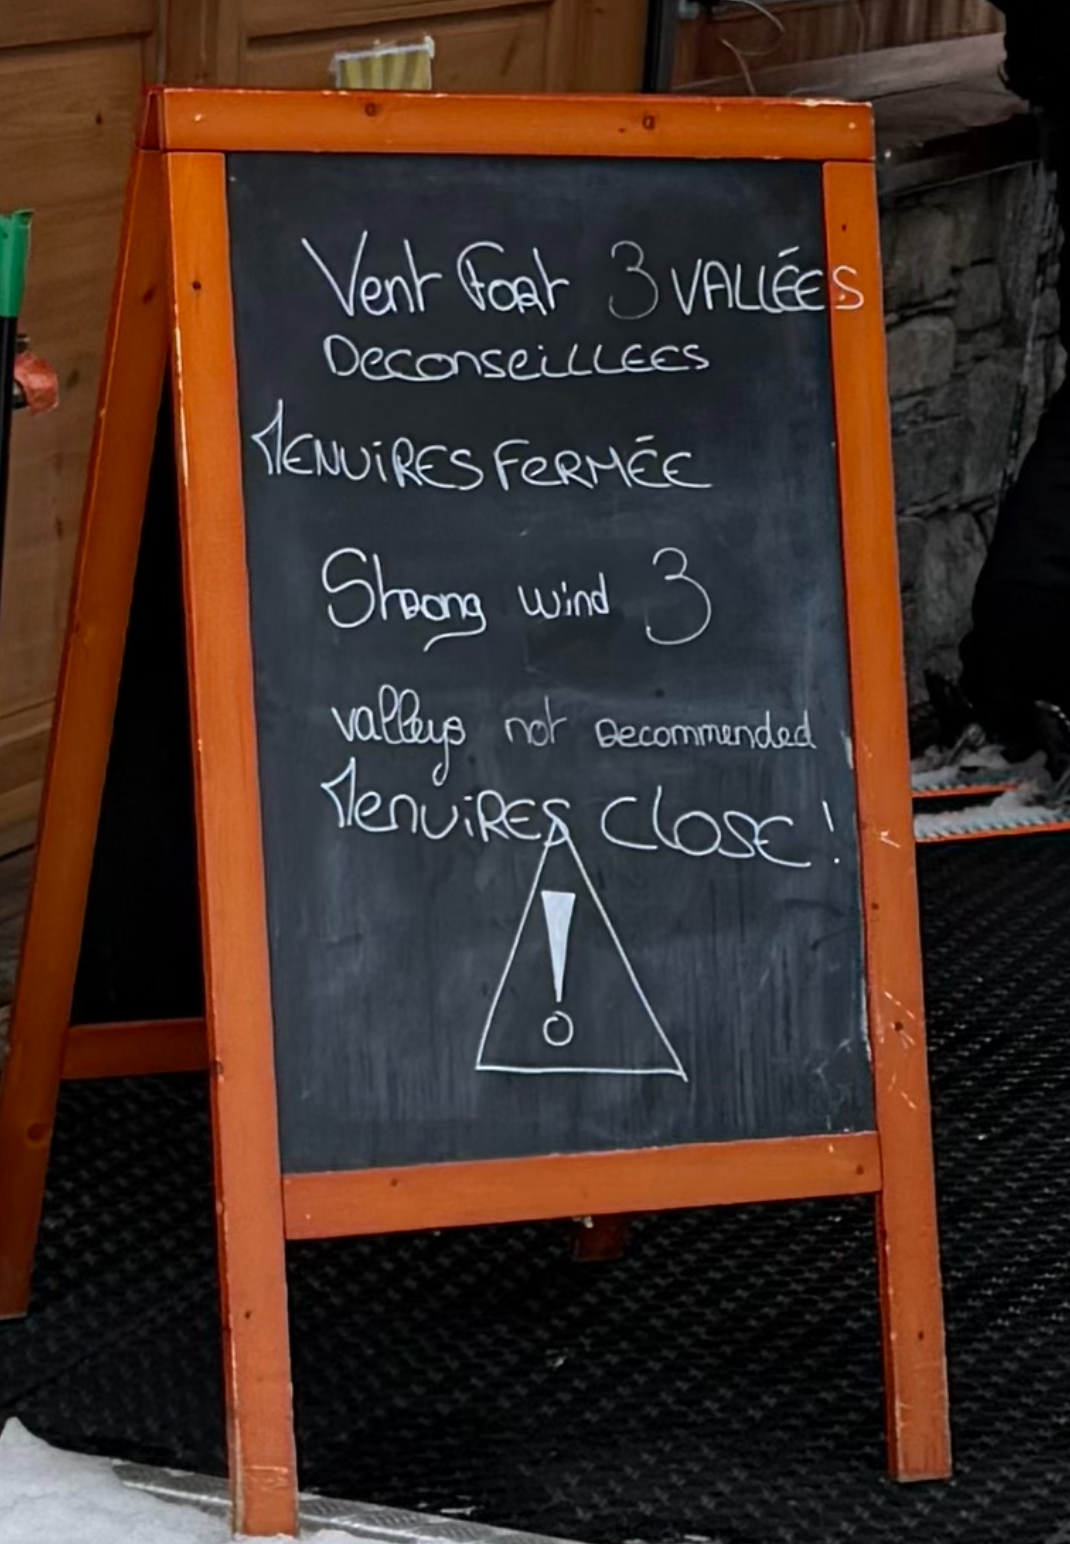 Vent Fort 3 VALLÉES
DeconseiLLEES
MENUiRES FeRMÉE
Strong wind 3
valleys not Recommended
MenuiRES CLOSE !
!